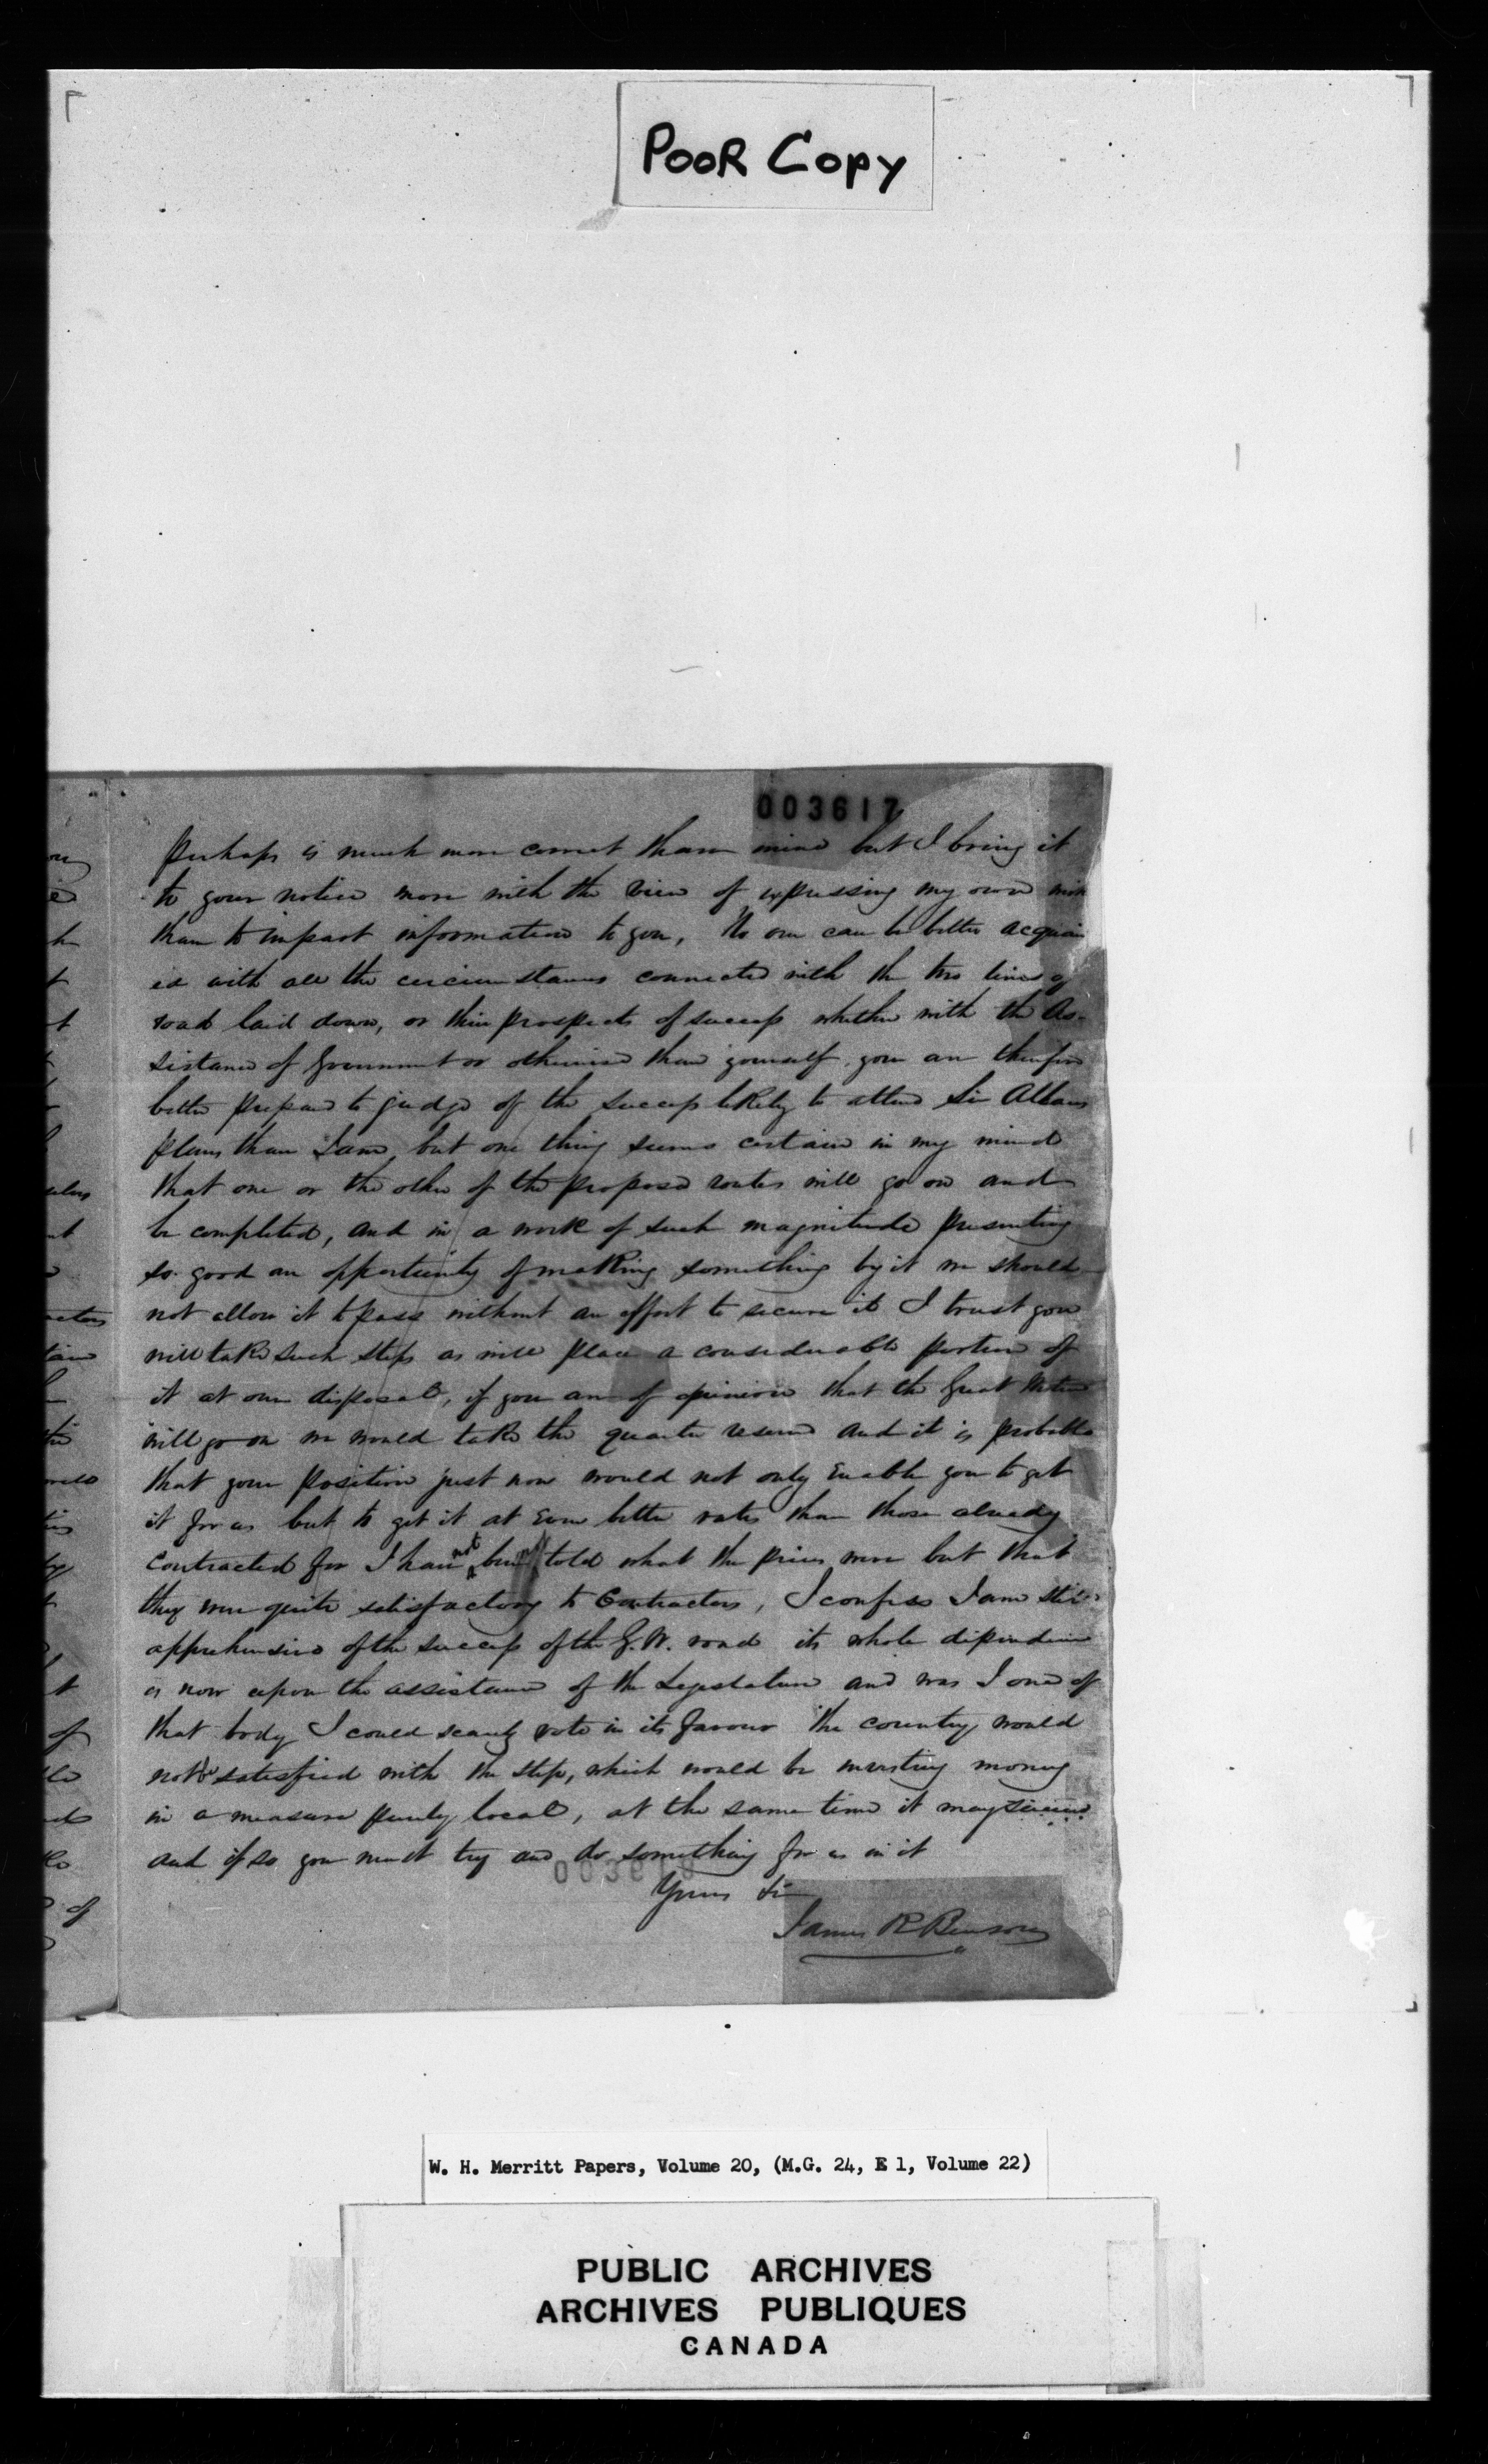 POOR COPY
003617
perhaps is much more correct than mine but I bring it
to your notice more with the view of expressing my own
than to impart information to you, No one can be better acquain
ed with all the circumstances connected with the two lines of
road laid down, or their prospects of success whether with the As-
sistance of Government or otherwise than yourself, you are therefore
better prepared to judge of the success likely to attend Sir Allans
plans than I am, but one thing seems certain in my mind
that one or the other of the proposed routes will go on and
be completed, and in a work of such magnitude presenting
so good an opportunity of making something by it we should
not allow it to pass without an effort to secure it I trust you
will take such steps as will place a considerable portion of
it at our disposal, if you are of opinion that the Great Western
will go on we would take the quarter reserved and it is probable
that your position just now would not only enable you to get
it for us but to get it at even better rates than those already
contracted for I have not been told what the prices were but that
they were quite satisfactory to Contractors, I confess I am still
apprehensive of the success of the G. W. road its whole dependence
is now upon the assistance of the Legislature and was I one of
that body I could scarcely vote in its favour the country would
not be satisfied with the step, which would be investing money
in a measure purely local, at the same time it may
and if so you must try and do something for us in it
003618
Yours
James R Benson
W. H. Merritt Papers, Volume 20, (M.G. 24, E 1, Volume 22)
PUBLIC ARCHIVES
ARCHIVES PUBLIQUES
CANADA